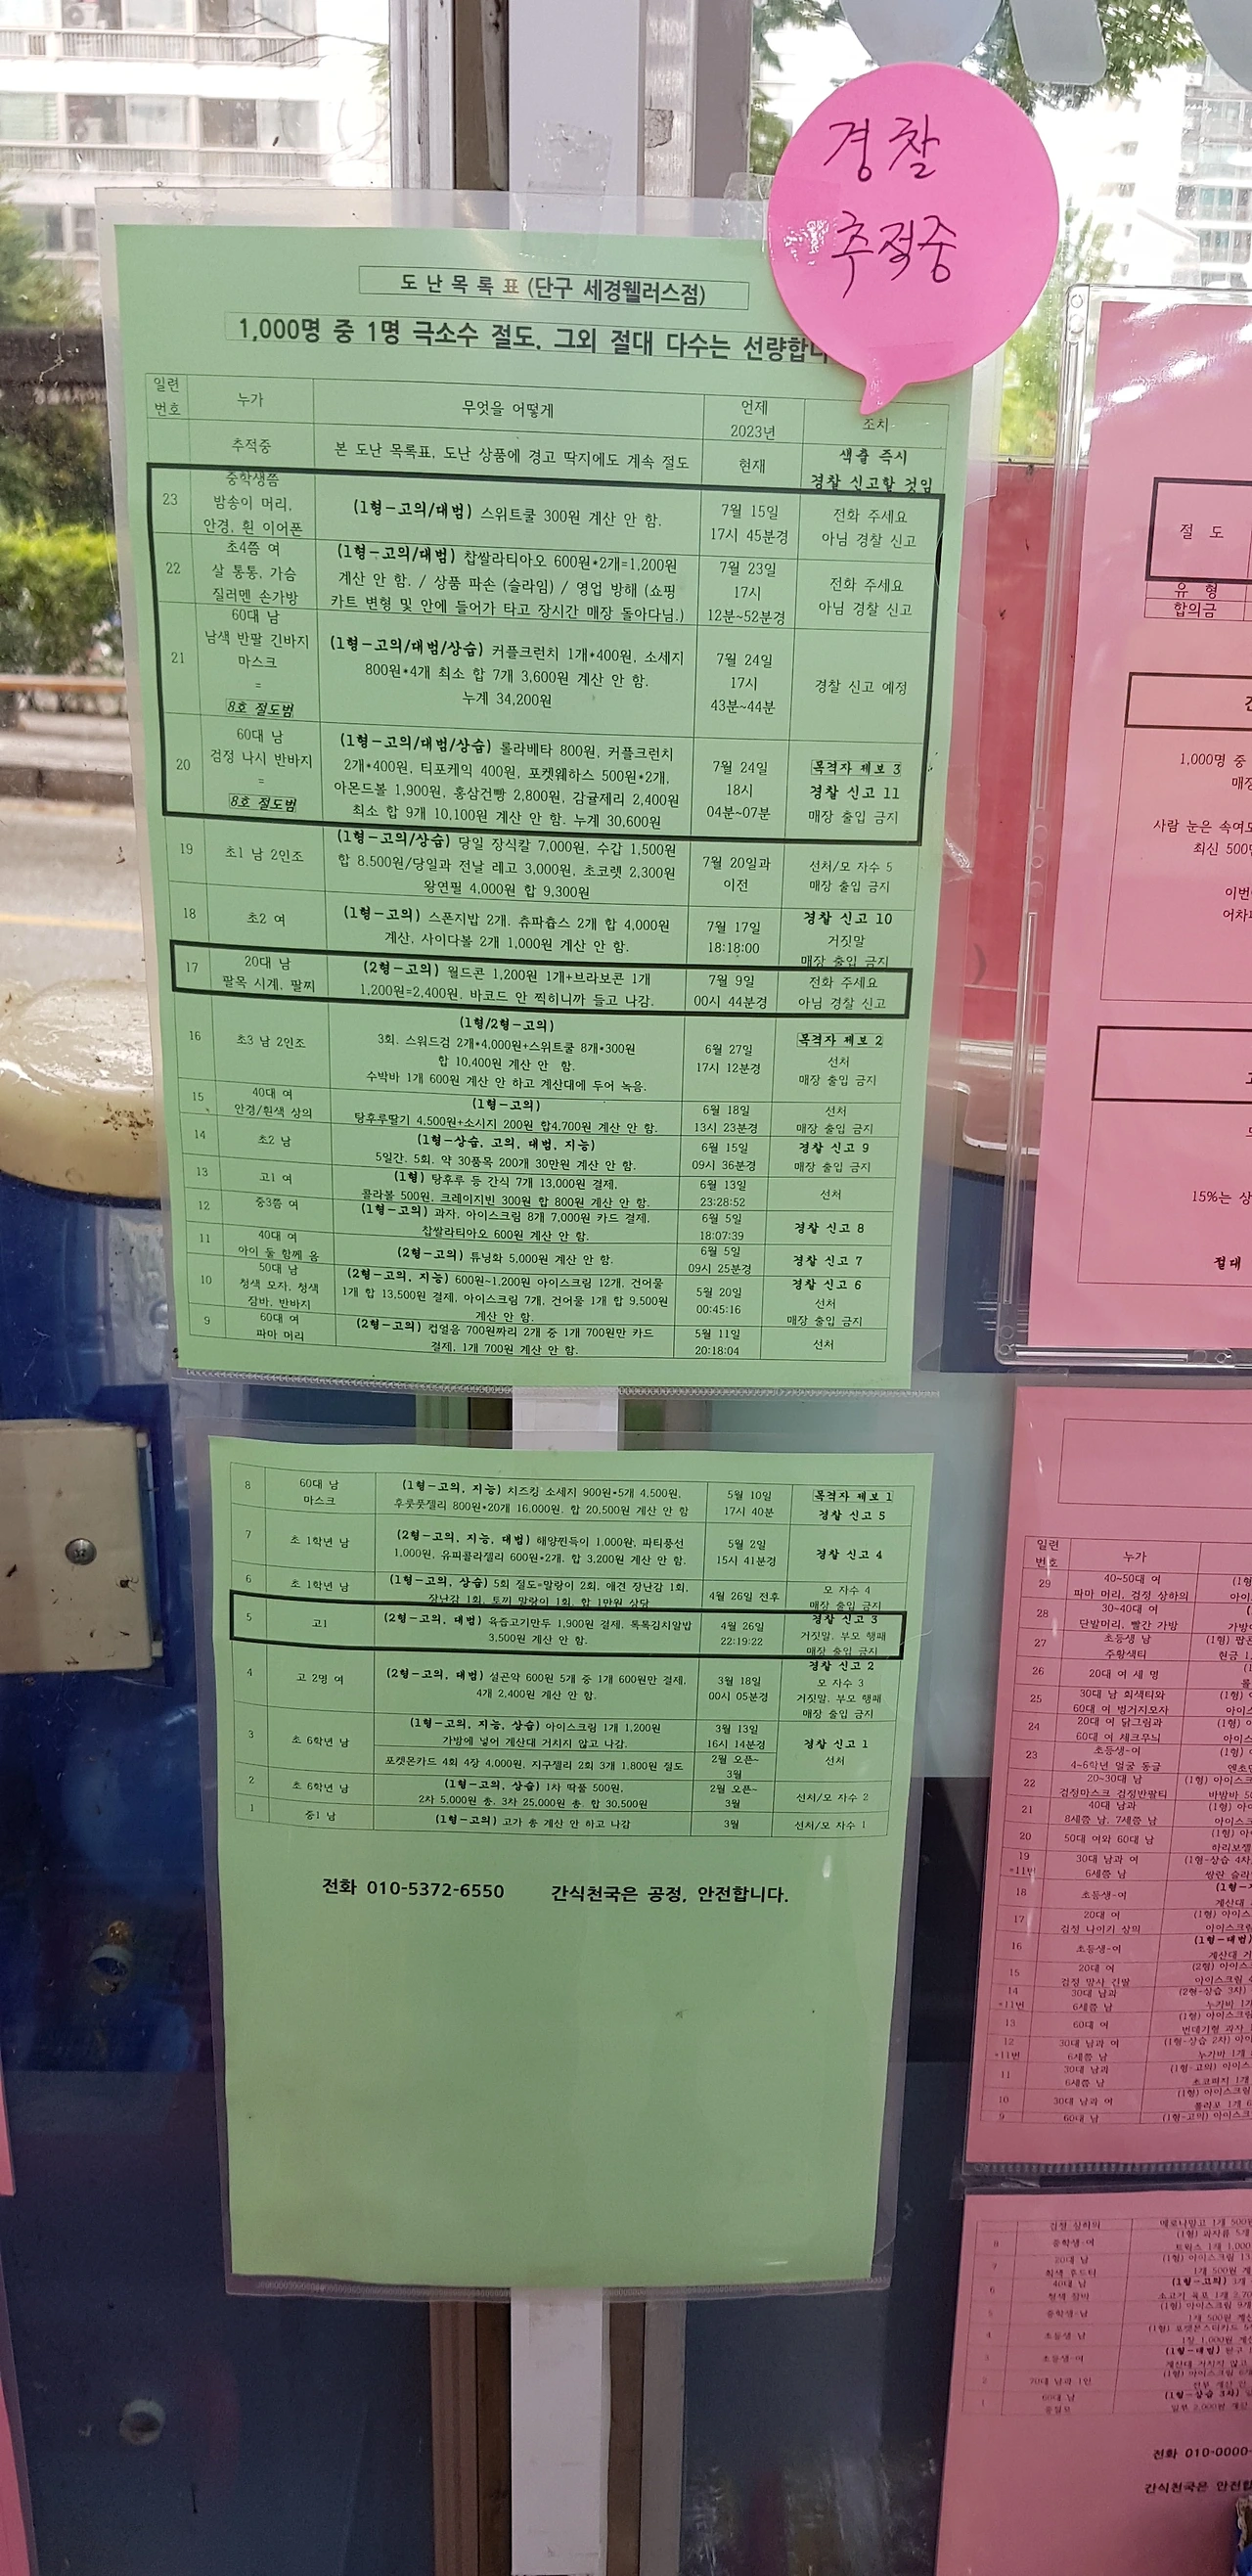 경찰
추적중
도난목록표(단구 세경웰러스점)
1,000명 중 1명 극소수 절도. 그외 절대 다수는 선량합니
일련
번호
누가
무엇을 어떻게
언제
2023년
조치
추적중
본 도난 목록표, 도난 상품에 경고 딱지에도 계속 절도
현재
색출 즉시
경찰 신고할 것임
23
중학생쯤
밤송이 머리,
안경, 흰 이어폰
(1형-고의/대범) 스위트쿨 300원 계산 안 함.
7월 15일
17시 45분경
전화 주세요
아님 경찰 신고
22
초4쯤 여
살 통통, 가슴
질러멘 손가방
(1형-고의/대범) 찹쌀라티아오 600원*2개=1,200원
계산 안 함. / 상품 파손 (슬라임) / 영업 방해 (쇼핑
카트 변형 및 안에 들어가 타고 장시간 매장 돌아다님.)
7월 23일
17시
12분~52분경
전화 주세요
아님 경찰 신고
21
60대 남
남색 반팔 긴바지
마스크
=
8호 절도범
(1형-고의/대범/상습) 커플크런치 1개*400원, 소세지
800원*4개 최소 합 7개 3,600원 계산 안 함.
누계 34,200원
7월 24일
17시
43분~44분
경찰 신고 예정
20
60대 남
검정 나시 반바지
=
8호 절도범
(1형-고의/대범/상습) 롤라베타 800원, 커플크런치
2개*400원, 티포케익 400원, 포켓웨하스 500원*2개,
아몬드볼 1,900원, 홍삼건빵 2,800원, 감귤제리 2,400원
최소 합 9개 10,100원 계산 안 함. 누계 30,600원
7월 24일
18시
04분~07분
목격자 제보 3
경찰 신고 11
매장 출입 금지
19
초1 남 2인조
(1형-고의/상습) 당일 장식칼 7,000원, 수갑 1,500원
합 8.500원/당일과 전날 레고 3,000원, 초코렛 2,300원
왕연필 4,000원 합 9,300원
7월 20일과
이전
선처/모 자수 5
매장 출입 금지
18
초2 여
(1형-고의) 스폰지밥 2개. 츄파춥스 2개 합 4,000원
계산, 사이다볼 2개 1,000원 계산 안 함.
7월 17일
18:18:00
경찰 신고 10
거짓말
매장 출입 금지
17
20대 남
팔목 시계, 팔찌
(2형-고의) 월드콘 1,200원 1개+브라보콘 1개
1,200원=2,400원. 바코드 안 찍히니까 들고 나감.
7월 9일
00시 44분경
전화 주세요
아님 경찰 신고
16
초3 남 2인조
(1형/2형-고의)
3회. 스워드검 2개*4,000원+스위트쿨 8개*300원
합 10,400원 계산 안 함.
수박바 1개 600원 계산 안 하고 계산대에 두어 녹음.
6월 27일
17시 12분경
목격자 제보 2
선처
매장 출입 금지
15
40대 여
안경/흰색 상의
(1형-고의)
탕후루딸기 4,500원+소시지 200원 합4,700원 계산 안 함.
6월 18일
13시 23분경
선처
매장 출입 금지
14
초2 남
(1형-상습, 고의, 대범, 지능)
5일간. 5회. 약 30품목 200개 30만원 계산 안 함.
6월 15일
09시 36분경
경찰 신고 9
매장 출입 금지
13
고1 여
(1형) 탕후루 등 간식 7개 13,000원 결제,
콜라볼 500원, 크레이지빈 300원 합 800원 계산 안 함.
6월 13일
23:28:52
선처
12
중3쯤 여
(1형-고의) 과자, 아이스크림 8개 7,000원 카드 결제.
찹쌀라티아오 600원 계산 안 함.
6월 5일
18:07:39
경찰 신고 8
11
40대 여
아이 둘 함께 옴
(2형-고의) 튜닝화 5,000원 계산 안 함.
6월 5일
09시 25분경
경찰 신고 7
10
50대 남
청색 모자, 청색
잠바, 반바지
(2형-고의, 지능) 600원~1,200원 아이스크림 12개, 건어물
1개 합 13,500원 결제, 아이스크림 7개, 건어물 1개 합 9,500원
계산 안 함.
5월 20일
00:45:16
경찰 신고 6
선처
매장 출입 금지
9
60대 여
파마 머리
(2형-고의) 컵얼음 700원짜리 2개 중 1개 700원만 카드
결제, 1개 700원 계산 안 함.
5월 11일
20:18:04
선처
8
60대 남
마스크
(1형-고의, 지능) 치즈킹 소세지 900원*5개 4,500원,
후룻풋젤리 800원*20개 16,000원. 합 20,500원 계산 안 함
5월 10일
17시 40분
목격자 제보 1
경찰 신고 5
7
초 1학년 남
(2형-고의, 지능, 대범) 해양찐득이 1,000원, 파티풍선
1,000원, 유피콜라젤리 600원*2개, 합 3,200원 계산 안 함.
5월 2일
15시 41분경
경찰 신고 4
6
초 1학년 남
(1형-고의, 상습) 5회 절도=말랑이 2회, 애견 장난감 1회,
장난감 1회, 토끼 말랑이 1회, 합 1만원 상당
4월 26일 전후
모 자수 4
매장 출입 금지
5
고1
(2형-고의, 대범) 육즙고기만두 1,900원 결제, 톡톡김치알밥
3,500원 계산 안 함.
4월 26일
22:19:22
경찰 신고 3
거짓말, 부모 행패
매장 출입 금지
4
고 2명 여
(2형-고의, 대범) 설곤약 600원 5개 중 1개 600원만 결제,
4개 2,400원 계산 안 함.
3월 18일
00시 05분경
경찰 신고 2
모 자수 3
거짓말, 부모 행패
매장 출입 금지
3
초 6학년 남
(1형-고의, 지능, 상습) 아이스크림 1개 1,200원
가방에 넣어 계산대 거치지 않고 나감.
포켓몬카드 4회 4장 4,000원, 지구젤리 2회 3개 1,800원 절도
3월 13일
16시 14분경
2월 오픈~
3월
경찰 신고 1
선처
2
초 6학년 남
(1형-고의, 상습) 1차 딱풀 500원,
2차 5,000원 총. 3차 25,000원 총. 합 30,500원
2월 오픈~
3월
선처/모 자수 2
1
중1 남
(1형-고의) 고가 총 계산 안 하고 나감
3월
선처/모 자수 1
전화 010-5372-6550 간식천국은 공정, 안전합니다.
절 도
유 형
합의금
1,000명 중
사람 눈은 속여도
최신 500만
15%는 상
절대
일련
번호
누가
29
40~50대 여
파마 머리, 검정 상하의
28
30~40대 여
단발머리, 빨간 가방
27
초등생 남
주황색티
26
20대 여 세 명
25
30대 남 회색티와
60대 여 벙거지모자
24
20대 여 닭그림과
60대 여 체크무늬
23
초등생-여
4~6학년 얼굴 동글
22
20~30대 남
검정마스크 검정반팔티
21
40대 남과
8세쯤 남, 7세쯤 남
20
50대 여와 60대 남
19
30대 남과 여
6세쯤 남
18
초등생-여
17
20대 여
검정 나이키 상의
16
초등생-여
15
20대 여
검정 망사 긴팔
14
30대 남과
6세쯤 남
13
60대 여
12
30대 남과 여
6세쯤 남
11
30대 남과
6세쯤 남
10
30대 남과 여
9
60대 남
전화 010-0000-
간식천국은 안전합